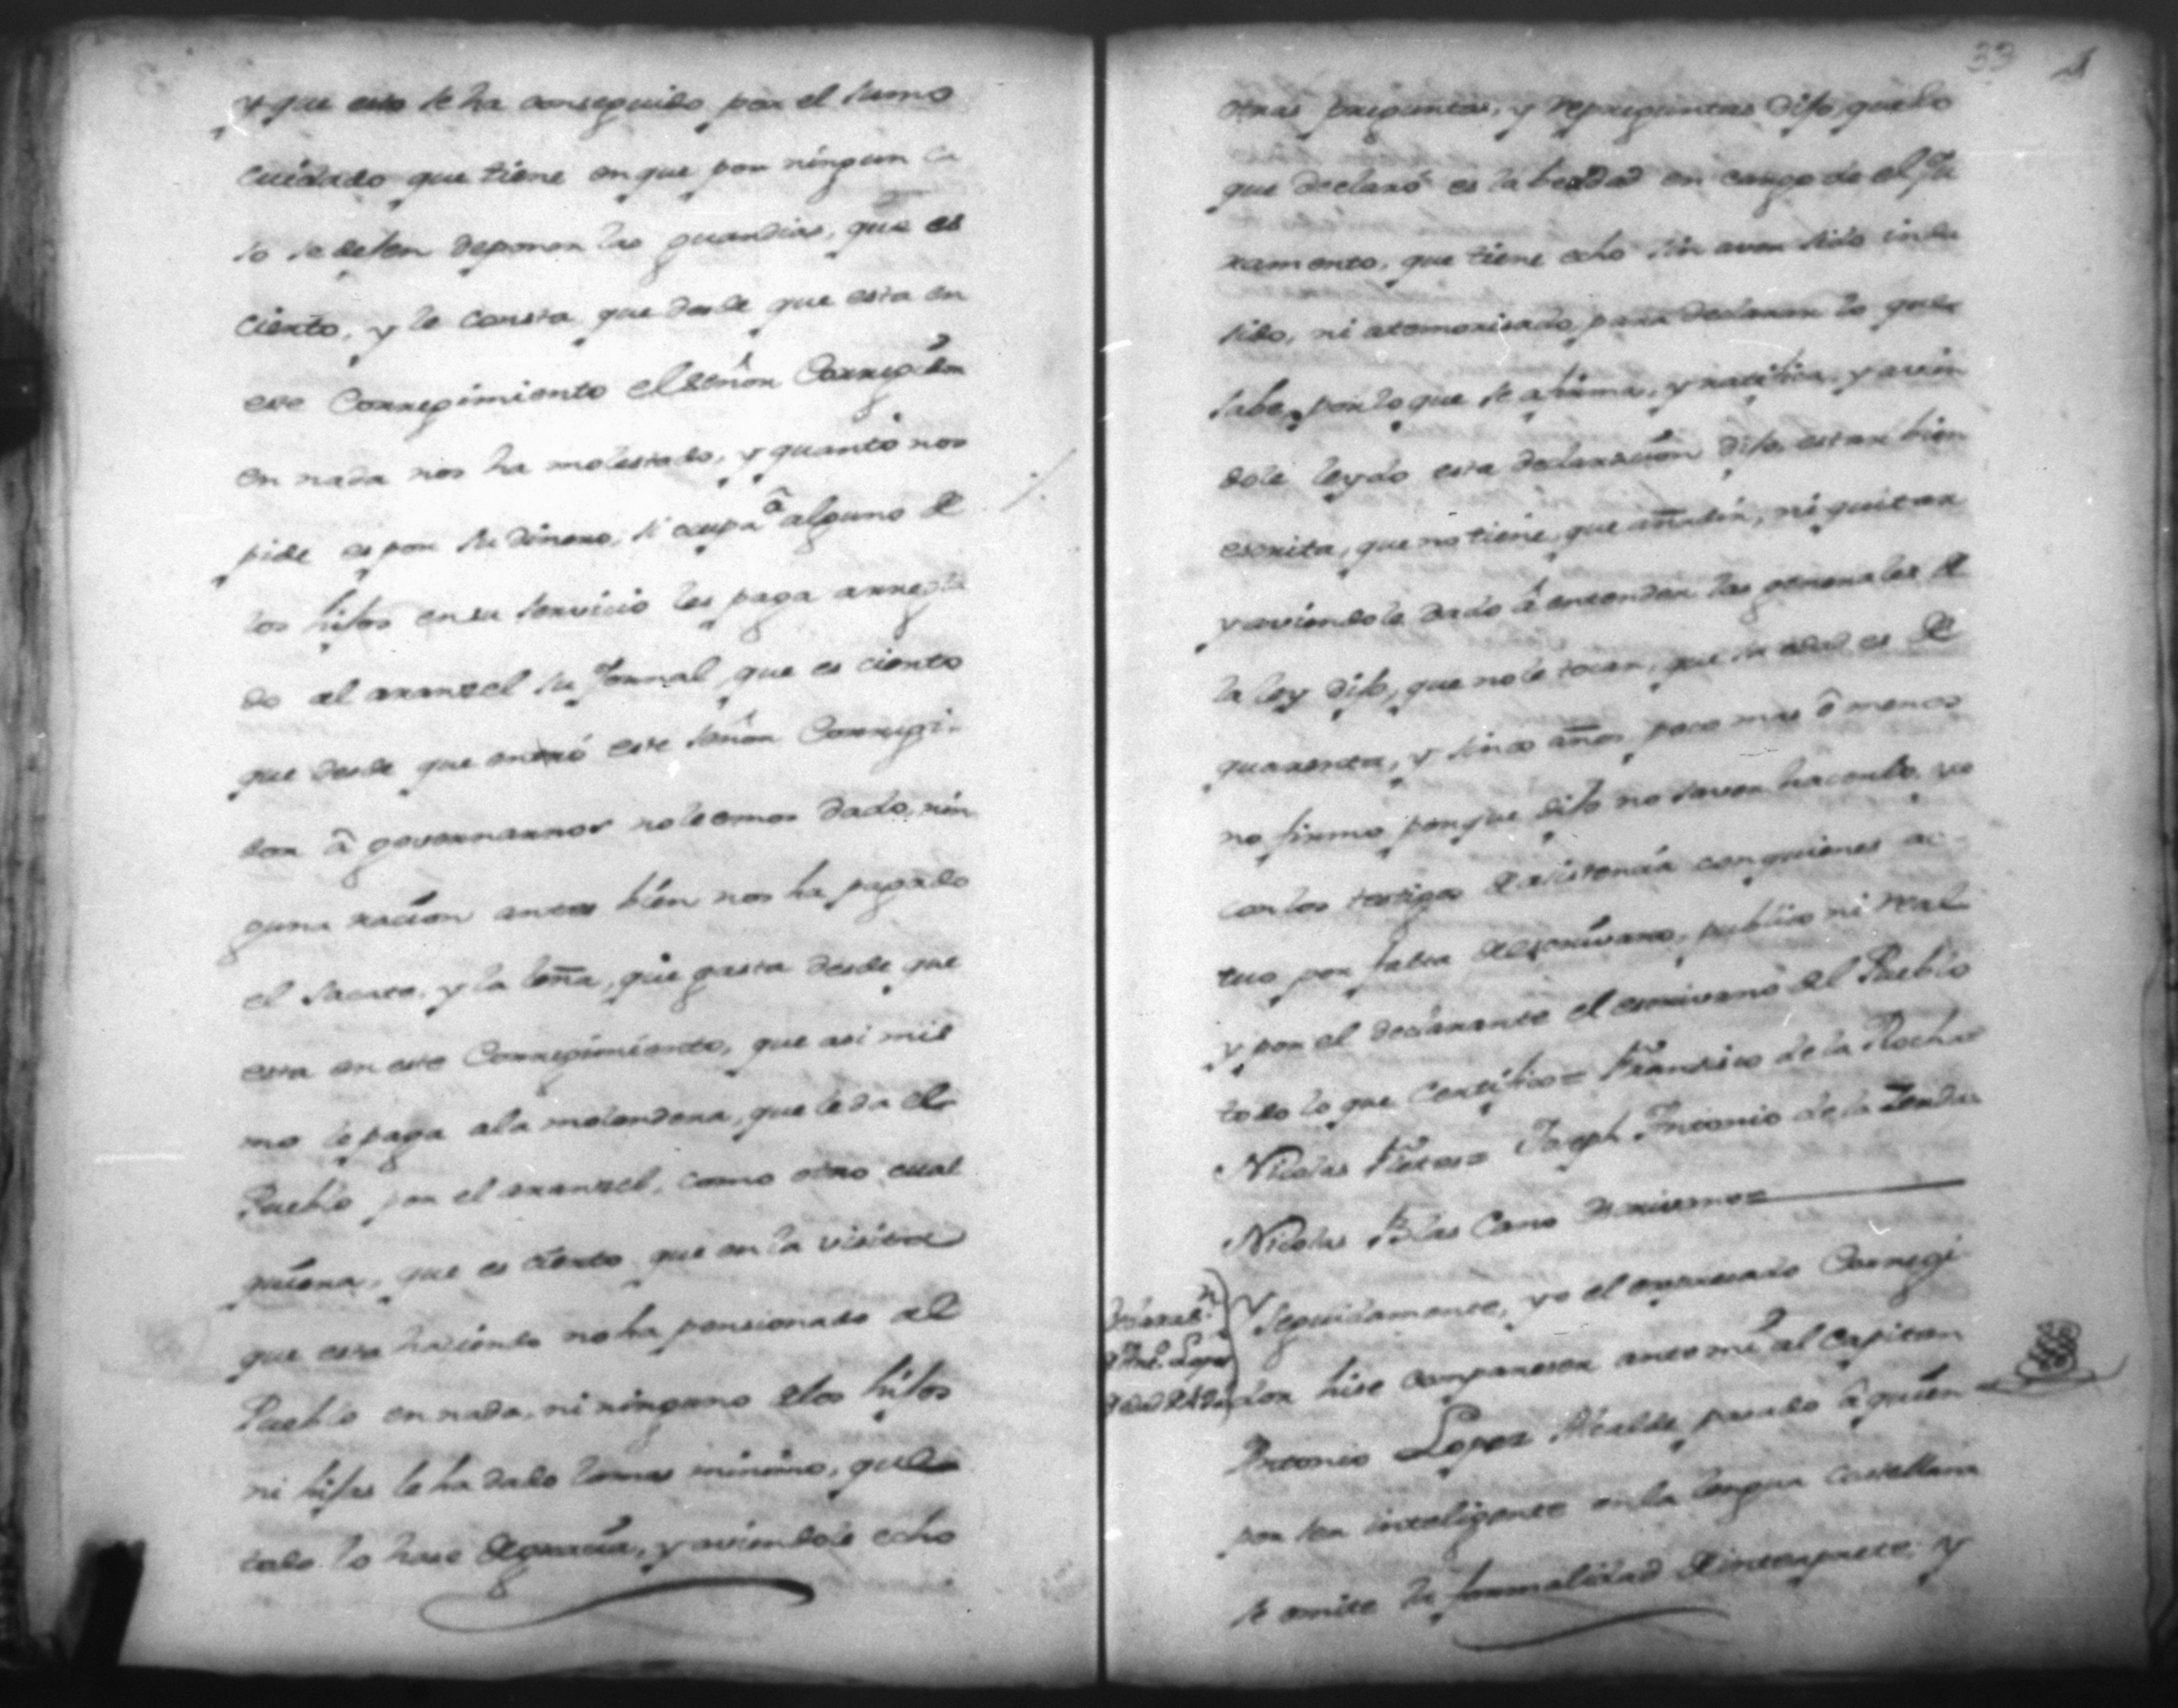 y que esto se ha conseguido por el sumo
cuidado que tiene en que por ningun ca
so se deſen deponer las guardias, que es
cierto, y le consta que desde que esta en
este Corregimiento el señor Corregidor
en nada nos ha molestado, y quanto nos
pide es por su dinero, si ocupa â alguno de
los hiſos en su servicio les paga arregla
do al aranzel su Jornal, que es cierto
que desde que entró este señor Corregi-
dor â governarnos no le emos dado nin
guna racion antes bien nos ha pagado
el sacate, y la leña, que gasta desde que
esta en este Corregimiento, que asi mis
mo le paga a la molendera, que le da el
Pueblo por el aranzel, como otro cual
quiera, que es cierto que en la visita
que esta haciendo no ha pensionado al
Pueblo en nada, ni ninguno de los hiſos
ni hiſas le ha dado lo mas minimo, que
todo lo hase de gracia, y aviendole echo
33
otras preguntas, y repreguntas diſo, que lo
que declaró es la berdad en cargo de el Ju
ramento, que tiene echo sin aver sido indu
sido, ni atemorisado para declarar lo que
sabe, por lo que se afirma, y ratifica, y avien
dole leydo esta declaracion diſo, estar bien
escrita, que no tiene, que añadir, ni quitar
y aviendole dado â entender las generales de
la ley diſo, que no le tocan, que su edad es de
quarenta, y sinco años poco mas ô menos
no firmo porque diſo no saver hacerlo, yo
con los testigos de asistencia con quienes ac-
tuo por falta de escrivano, publico ni real
y por el declarante el escrivano del Pueblo
todo lo que Certifico= Francisco de la Rocha=
Nicolas Fletes= Joseph Antonio de la Zerda=
Nicolas Blas Cano Escrivano=
Declarasn.
de Ant. Lopes
Seguidamente, yo el expresado Corregi
dor hise comparecer ante mi al Capitan
Antonio Lopez Alcalde pasado â quien
por ser inteligente en la lengua Castellana
se omite la formalidad de interprete, y